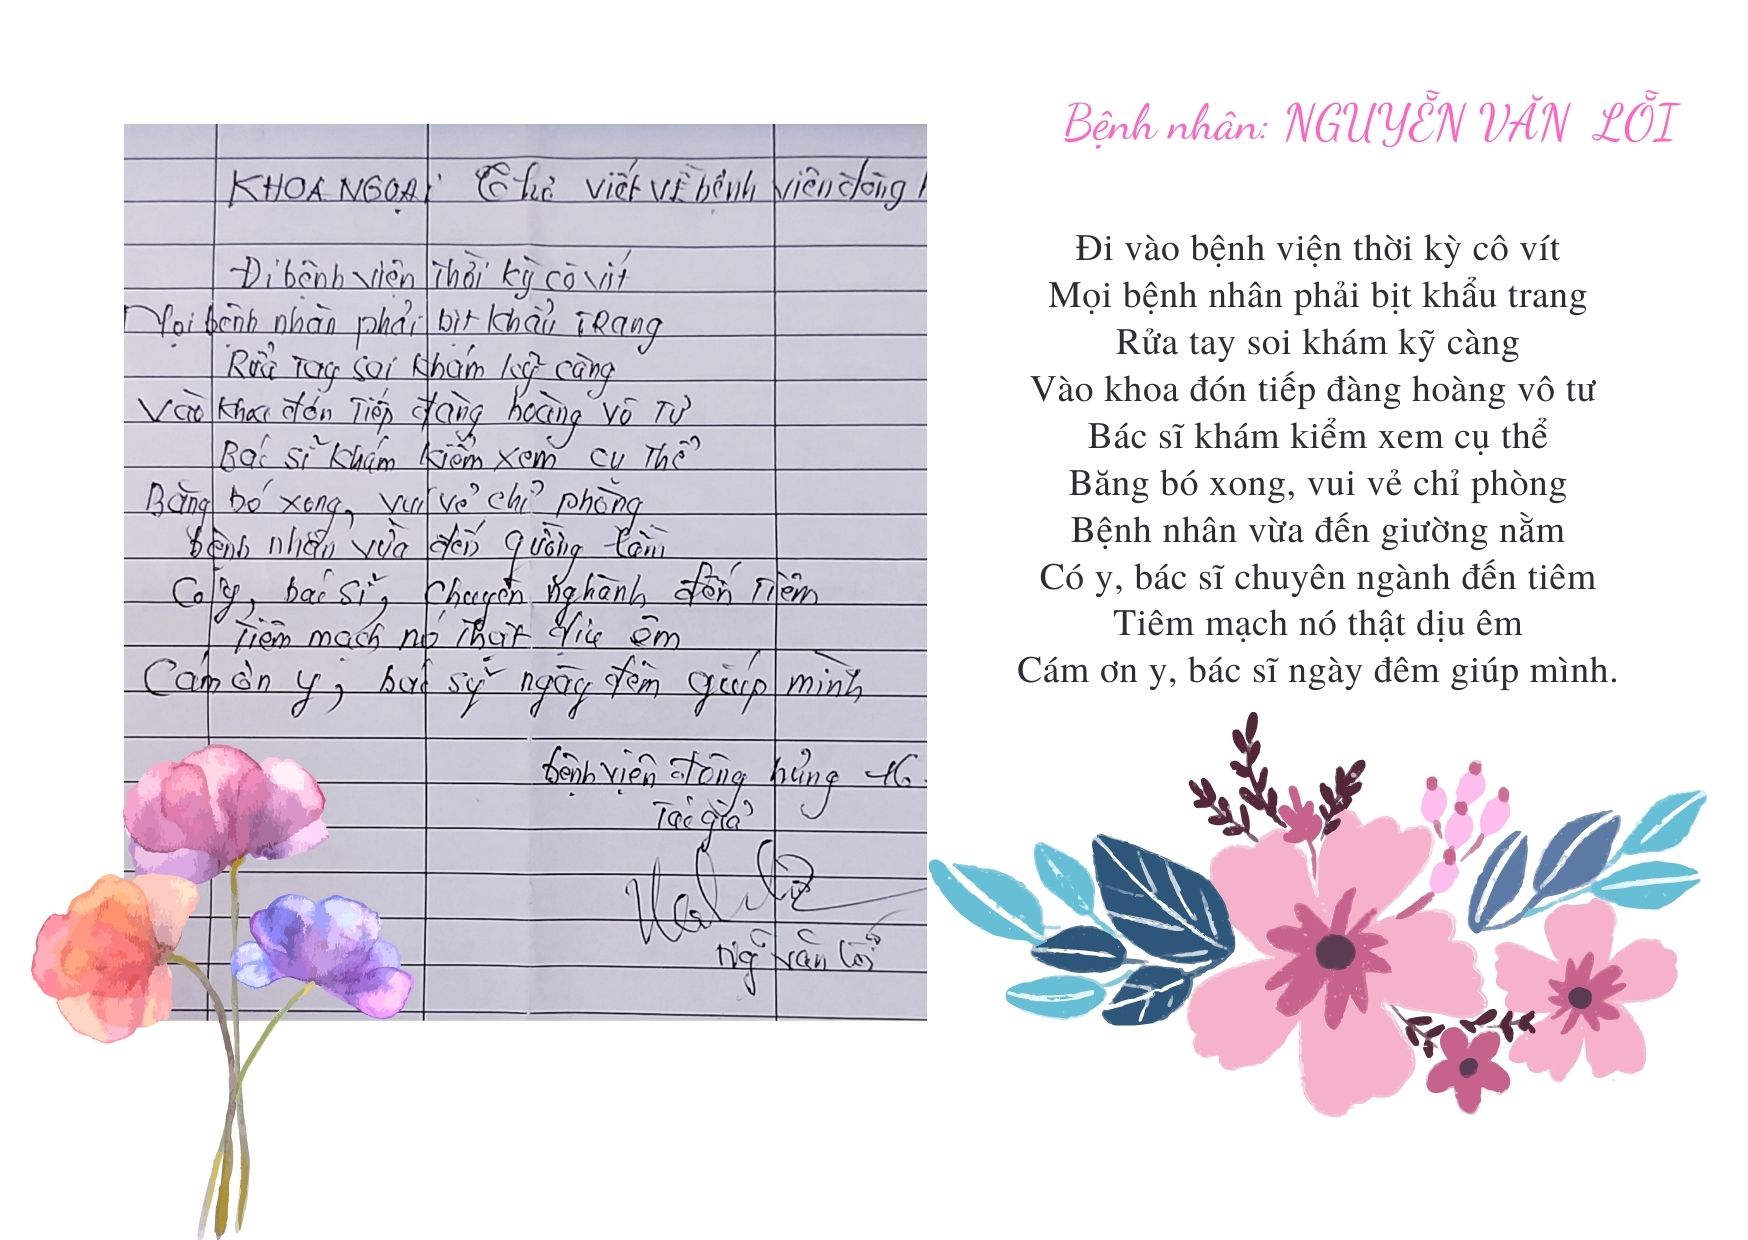 KHOA NGOẠI viết về bệnh viện đông
Đi bệnh viện thời kỳ cô vít
Mọi bệnh nhân phải bịt khẩu TRang
Rửa Tay soi khám kỹ càng
Vào khoa đón Tiếp đàng hoàng vô Tư
Bác sĩ khám kiểm xem cụ Thể
Băng bó xong, vui vẻ chỉ phòng
bệnh nhân vừa đến giường
Có y, bác sĩ, chuyên nghành đến Tiêm
Tiêm mạch nó Thật dịu êm
Cám ơn y, bác sỹ ngày đêm giúp mình
bệnh viện đông hưng
Tác giả
Ng văn Lỗi
Bệnh nhân: NGUYỄN VĂN LỖI
Đi vào bệnh viện thời kỳ cô vít
Mọi bệnh nhân phải bịt khẩu trang
Rửa tay soi khám kỹ càng
Vào khoa đón tiếp đàng hoàng vô tư
Bác sĩ khám kiểm xem cụ thể
Băng bó xong, vui vẻ chỉ phòng
Bệnh nhân vừa đến giường nằm
Có y, bác sĩ chuyên ngành đến tiêm
Tiêm mạch nó thật dịu êm
Cám ơn y, bác sĩ ngày đêm giúp mình.